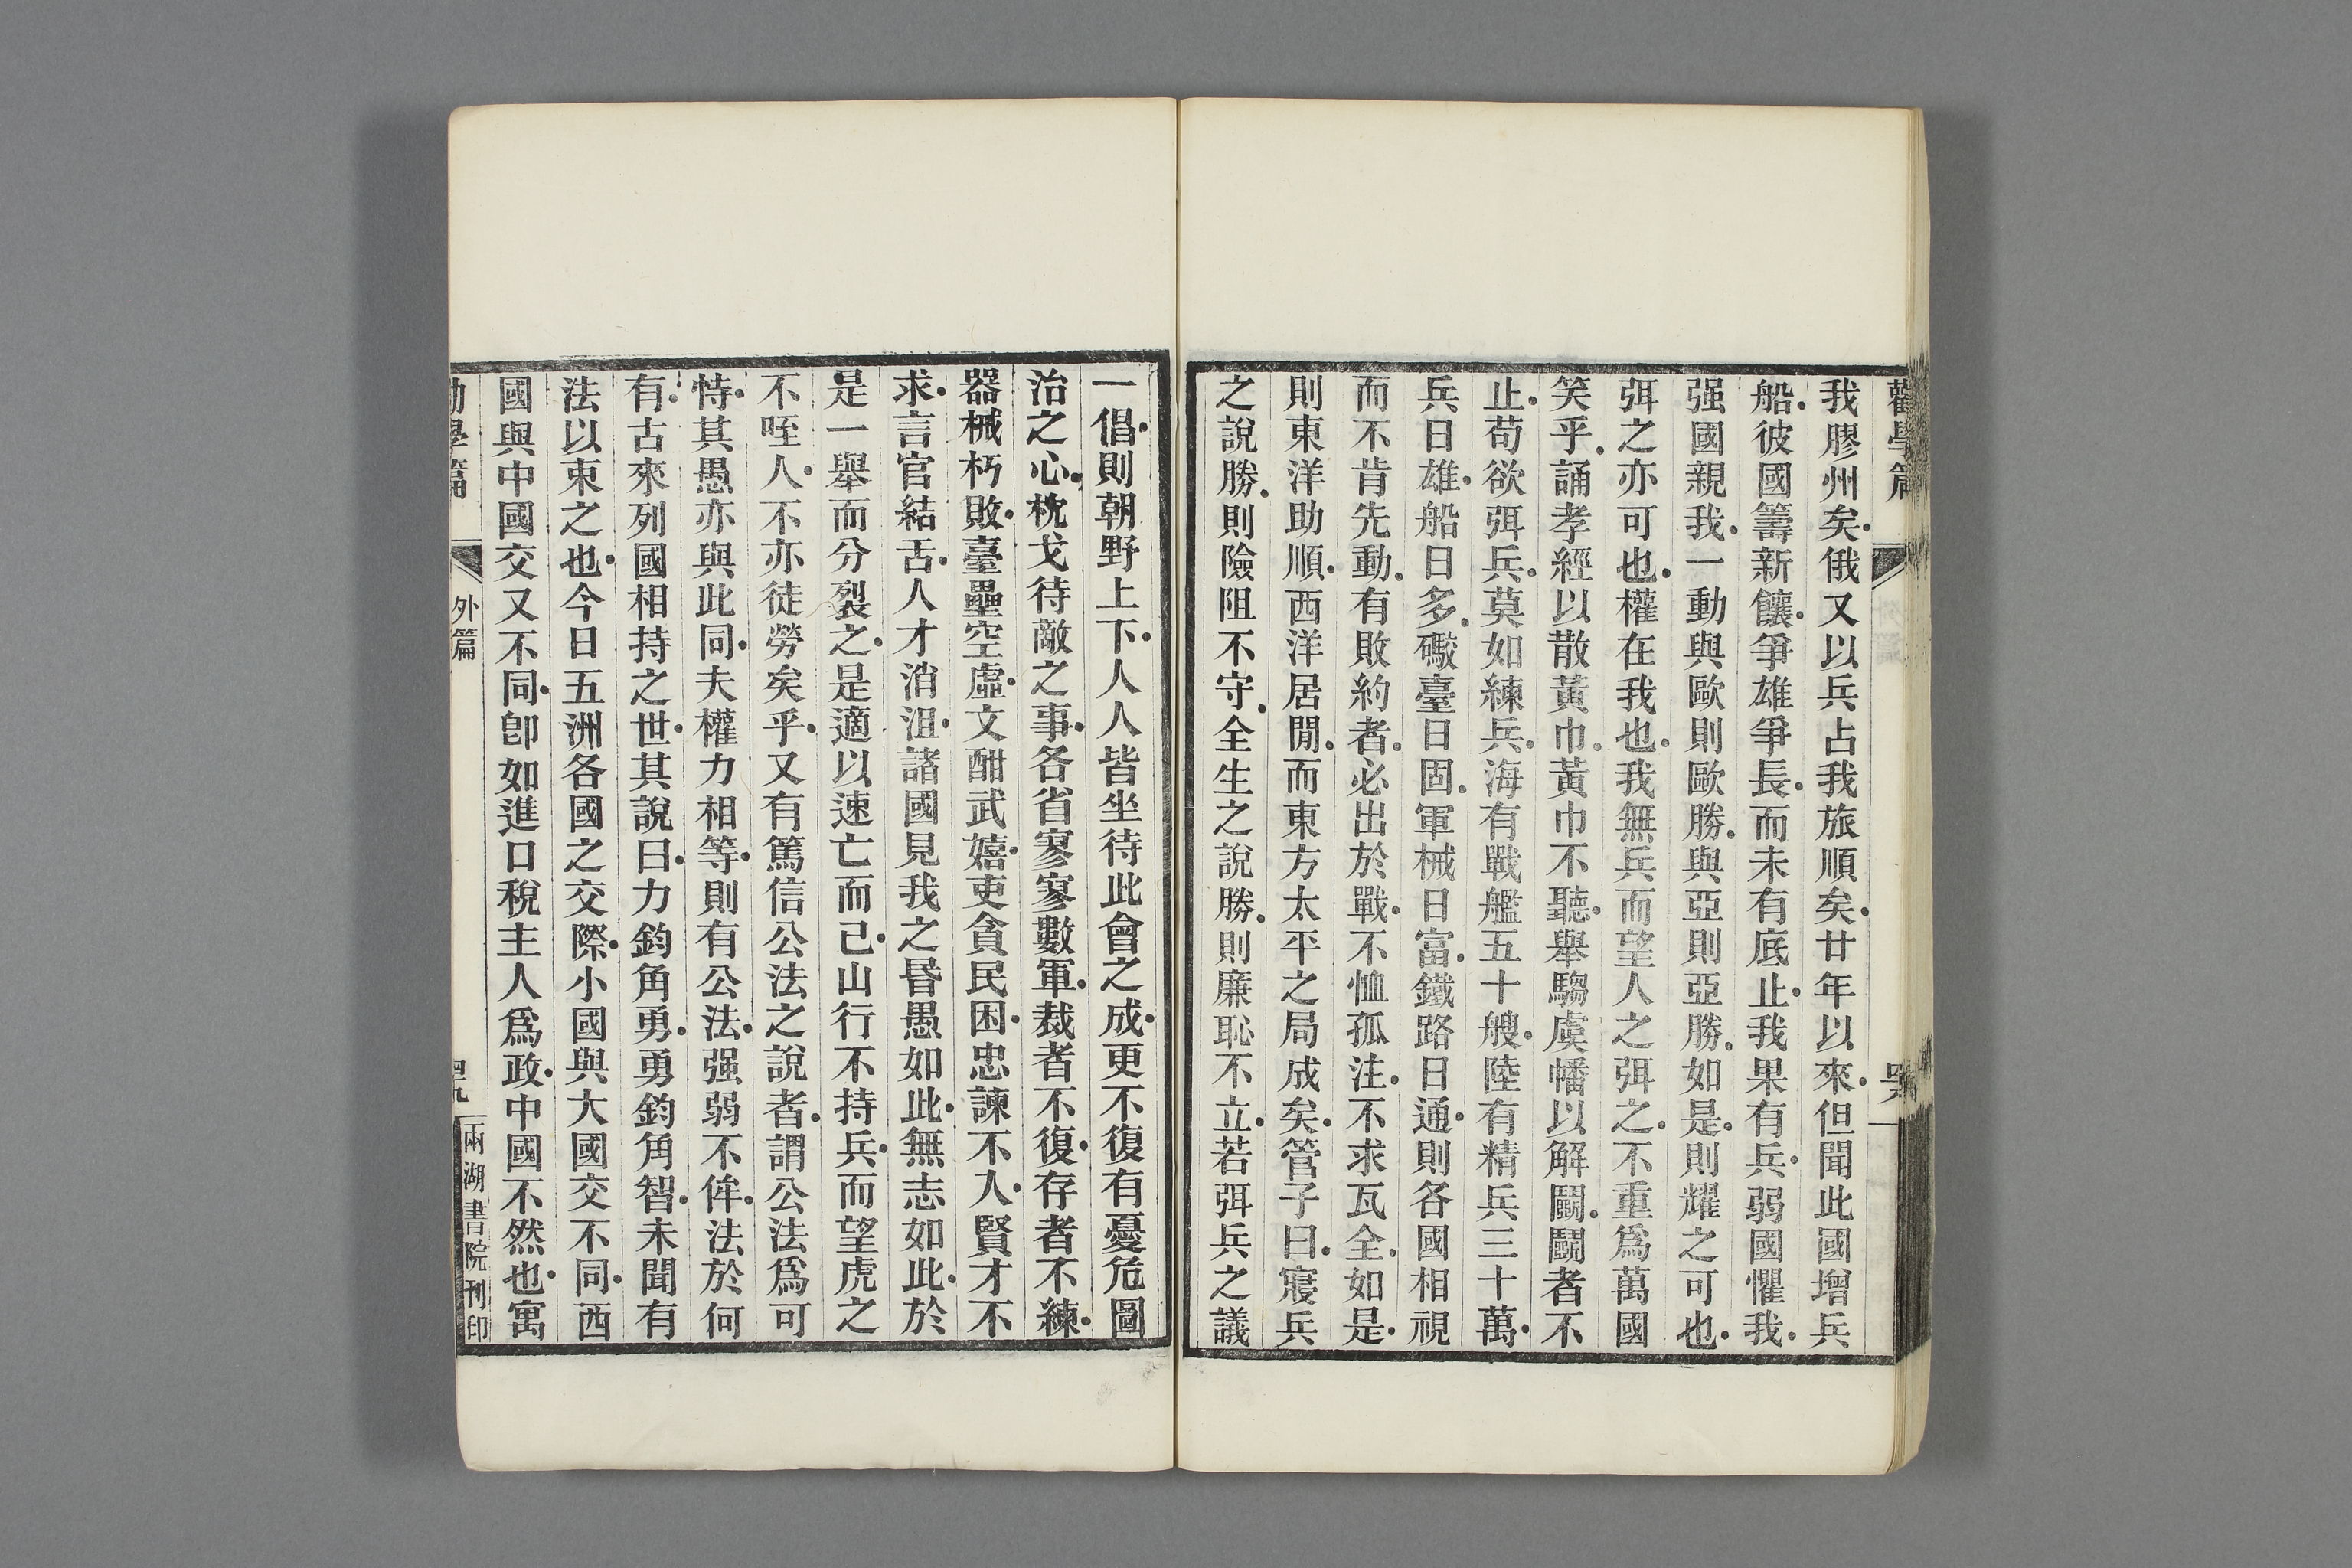 勸學篇
我膠州矣俄又以兵占我旅順矣廿年以來但聞此國增兵
船彼國籌新饟爭雄爭長而未有底止我果有兵弱國懼我
强國親我一動與歐則歐勝與亞則亞勝如是則耀之可也
弭之亦可也權在我也我無兵而望人之弭之不重爲萬國
笑乎誦孝經以散黃巾黃巾不聽舉騶虞幡以解鬬鬬者不
止苟欲弭兵莫如練兵海有戰艦五十艘陸有精兵三十萬
兵日雄船日多礮臺日固軍械日富鐵路日通則各國相視
而不肯先動有敗約者必出於戰不恤孤注不求瓦全如是
則東洋助順西洋居閒而東方太平之局成矣管子曰寢兵
之說勝則險阻不守全生之說勝則廉恥不立若弭兵之議
一倡則朝野上下人人皆坐待此會之成更不復有憂危圖
治之心枕戈待敵之事各省寥寥數軍裁者不復存者不練
器械朽敗臺壘空虛文酣武嬉吏貪民困忠諫不入賢才不
求言官結舌人才消沮諸國見我之昬愚如此無志如此於
是一舉而分裂之是適以速亡而已山行不持兵而望虎之
不咥人不亦徒勞矣乎又有篤信公法之說者謂公法爲可
恃其愚亦與此同夫權力相等則有公法强弱不侔法於何
有古來列國相持之世其說曰力鈞角勇勇鈞角智未聞有
法以束之也今日五洲各國之交際小國與大國交不同西
國與中國交又不同卽如進口稅主人爲政中國不然也寓
外篇
兩湖書院刊印